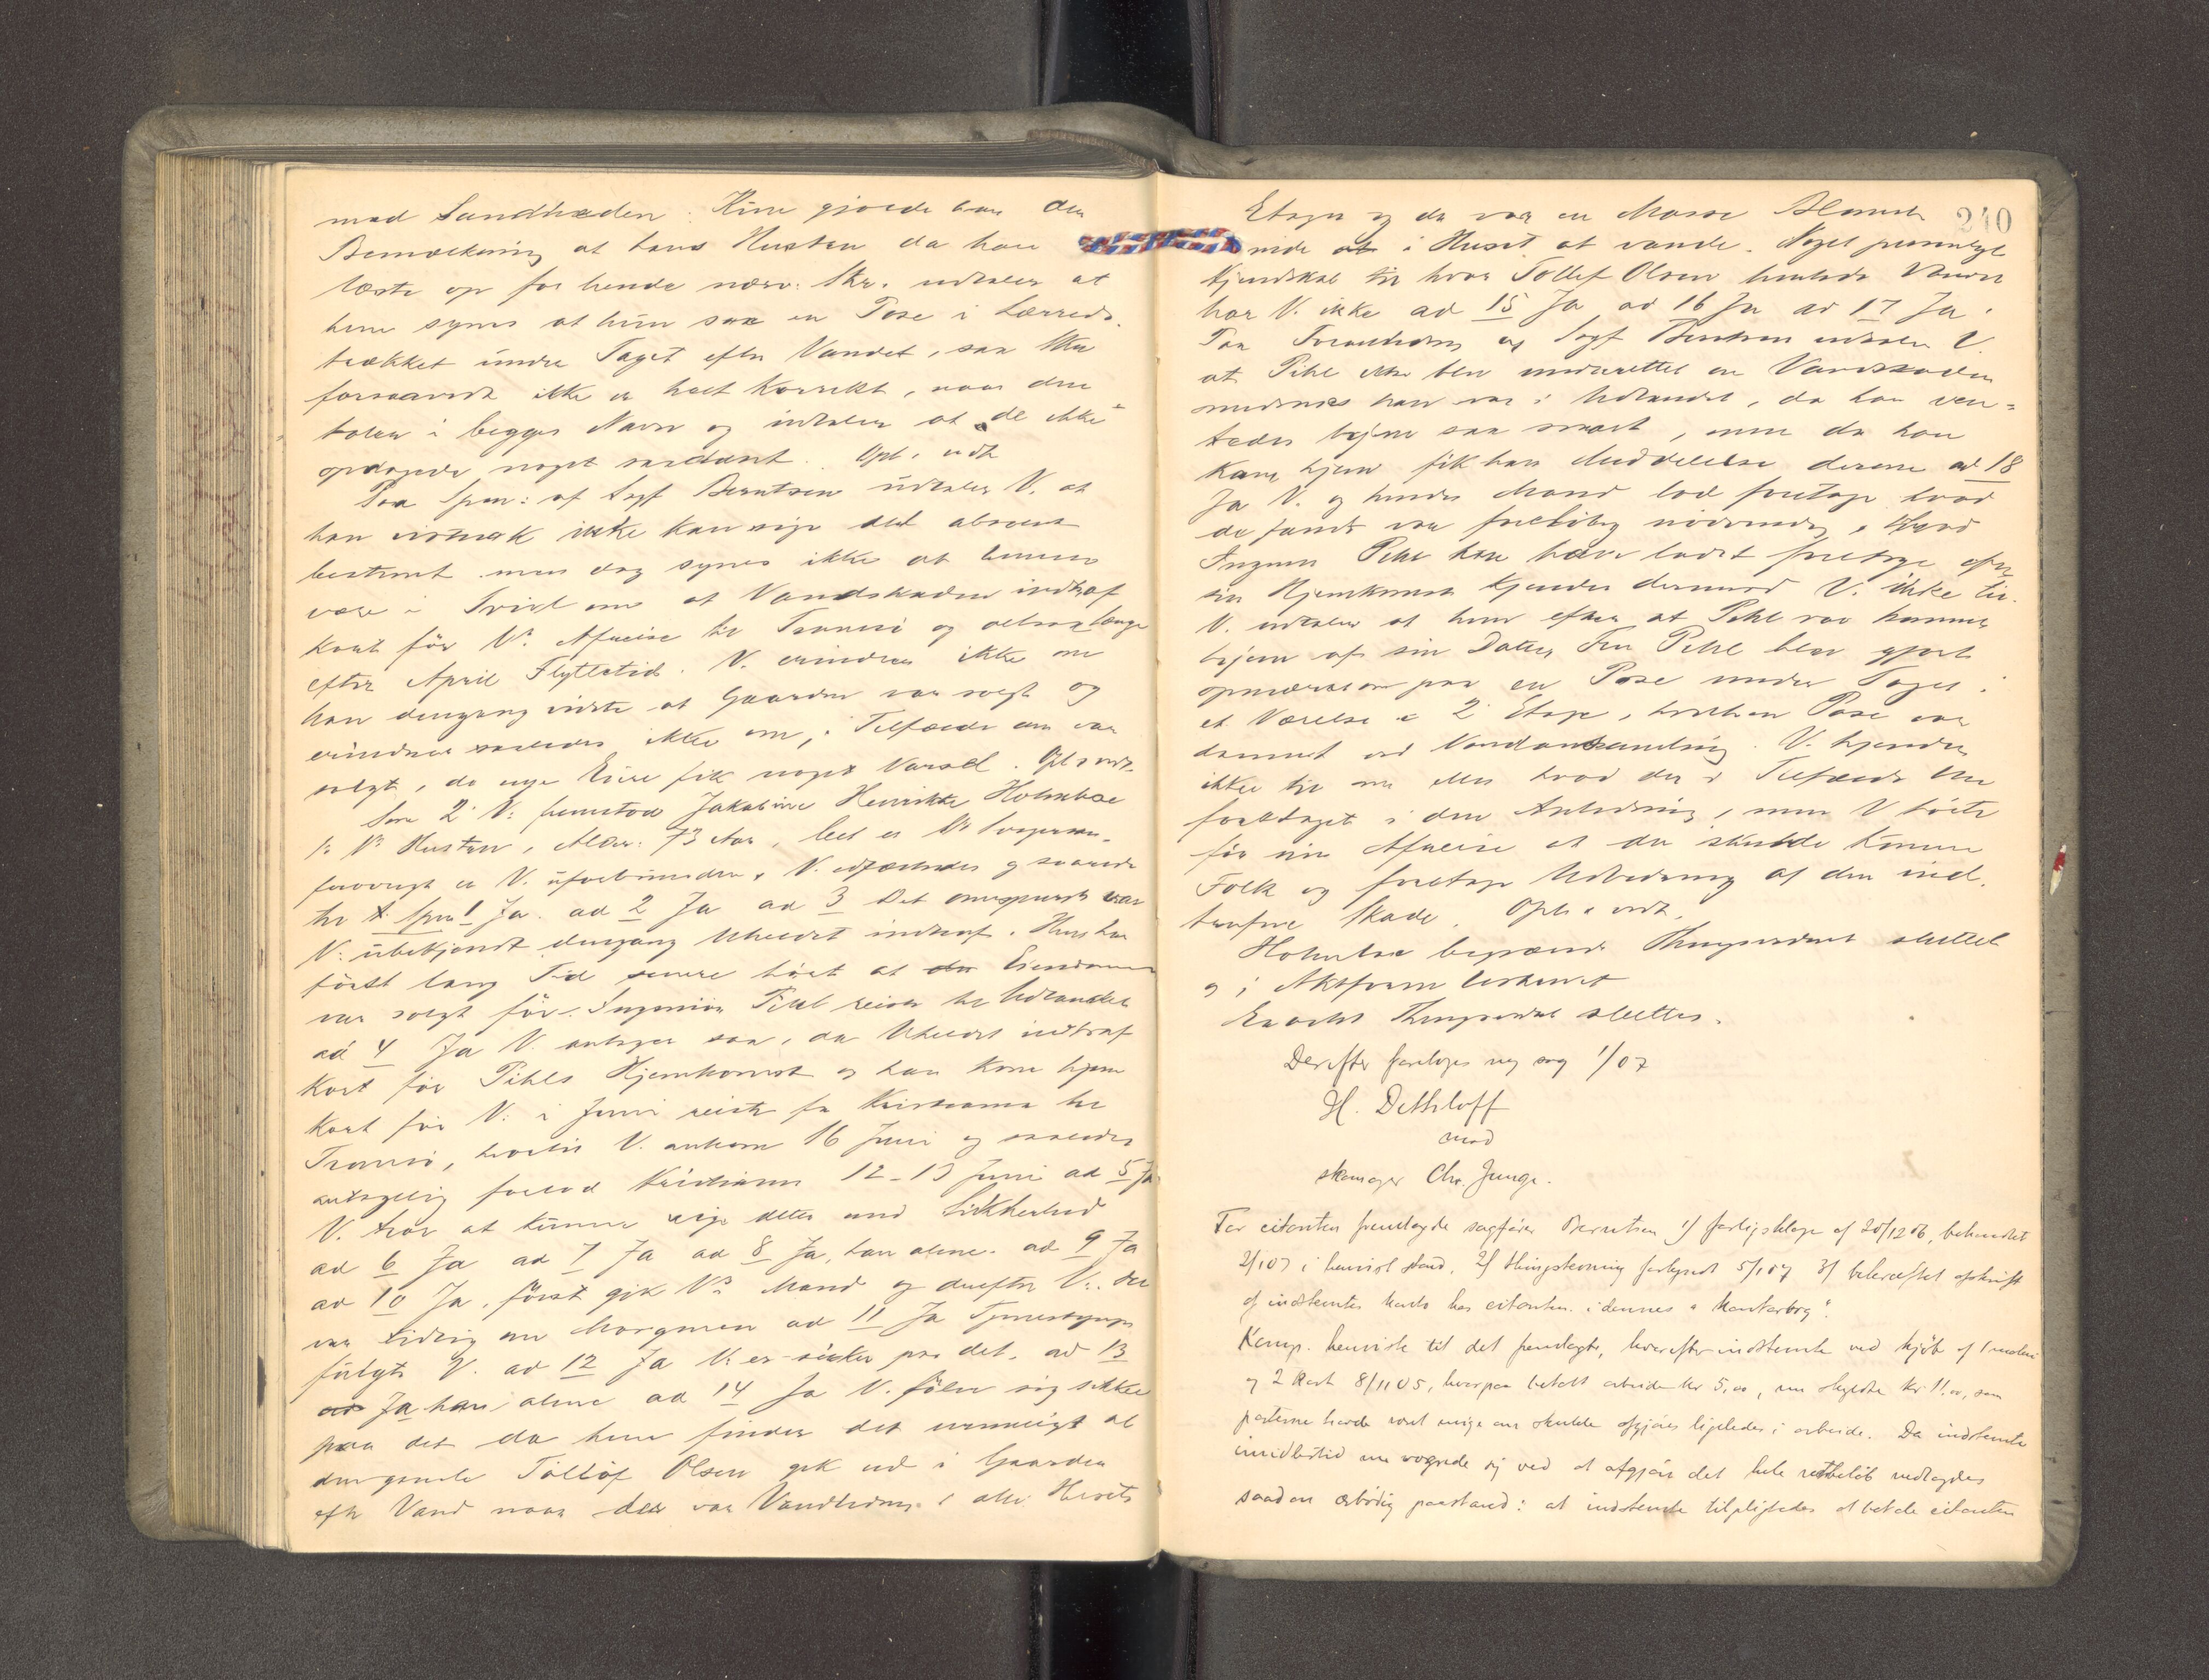 mod Sandheden. Kun gjorde han den
Bemærkning at hans Hustru da han
læste op for hende nærv. Skr. udtaler at
hun synes at hun saa en Pose i Lærreds-
trækket under Taget efter Vandet, saa Skr
forsaavidt ikke er helt korrekt, naar den
taler i begges Navn og udtaler at "de ikke
opdagede noget saadant. Opl. vedt
Paa Spm: af Sagf Berntsen udtaler V. at
han vistnok ikke kan sige det absolut
bestemt men dog synes ikke at kunne
være i Tvivl om at Vandskaden indtraf
kort før V's Afreise til Tromsø og altsaa længe
efter April Flyttetid. V. erindrer ikke om
han dengang vidste at Gaarden var solgt og
erindrer saaledes ikke om, i Tilfælde den var
solgt, de nye Eiere fik noget Varsel. Opl. vedt.
Som 2 V: fremstod Jakobine Henrikke Holmboe
1. V's Hustru, Alder: 73 Aar,
forøvrigt er V. uforbunden. V. edfæstedes og svarede
til Spm 1 Ja. ad 2 Ja ad 3 Det omspurgte var
V. ubekjendt dengang Uheldet indtraf. Hun har
først lang Tid senere hørt at Eiendommen
var solgt før Ingeniør Pihl reiste til Udlandet
ad 4 Ja V. antager saa, da Uheldet indtraf
kort før Pihls Hjemkomst og han kom hjem
kort før V. i Juni reiste fra Kristiania til
Tromsø, hvortil V. ankom 16 Juni og saaledes
antagelig forlod Kristiania 12-13 Juni ad 5 Ja
V. tror at kunne sige dette med Sikkerhed
ad 6 Ja ad 7 Ja ad 8 Ja, han alene. ad 9 Ja
ad 10 Ja, først gik V's Mand og derefter V. Det
var tidlig om Morgenen ad 11 Ja Tjenestepige
fulgte V. ad 12 Ja V. er sikker paa det. ad 13
Ja han alene ad 14 Ja V. føler sig sikker
paa det da hun finder det urimeligt at
den gamle Tollef Olsen gik ud i Gaarden
efter Vand naar der var Vandledning i alle Husets
240
Etager og der var en Masse Mennesker
inde i Huset at vande. Noget personligt
Kjendskab til hvor Tollef Olsen hentede Vandet
har V. ikke ad 15 Ja ad 16 Ja ad 17 Ja.
Paa Foranledning af Sagf Berntsen udtaler V.
at Pihl ikke blev underrettet om Vandskaden
medens han var i Udlandet, da han ven-
tedes hjem saa snart, men da han
kom hjem fik han Meddelelse derom ad 18
Ja V. og hendes Mand lod foretage hvad
de fandt var foreløbig nødvendig. Hvad
Ingeniør Pihl kan have ladet foretage efter
sin Hjemkomst kjender dermod V. ikke til.
V. udtaler at hun efter at Pihl var kommet
hjem af sin Datter Fru Pihl blev gjort
opmærksom paa en Pose under Taget i
et Værelse i 2 Etage, hvilken Pose var
dannet ved Vandansamling. V. kjender
ikke til om eller hvad der i Tilfælde blev
foretaget i den Anledning, men V hørte
før sin Afreise at der skulde komme
Folk og foretage Udbedring af den ind-
trufne Skade. Opl. vedt.
Holmboe begjærede Thingsvidnet sluttet
og i Aktform beskrevet
Eragtet Thingsvidnet sluttes.
Derefter foretoges ny sag 1/07
H. Dethloff
mod
skomager Chr. Junge.
For citanten fremlagde sagfører Berntsen 1/ forligsklage af 20/12 06, behandlet
2/1 07 i henvist stand, 2/ thingstevning forkyndt 5/1 07 3/ bekræftet afskrift
af indstevntes konto hos citanten i dennes "kontorbog".
Komp. henviste til det fremlagte, hvorefter indstevnte ved kjøb af 1 maskine
og 2 8/11 05, hvorpaa betalt arbeide kr 5,00, nu skyldte kr 11.00, som
parterne havde været enige om skulde afgjøres ligeledes i arbeide. Da indstevnte
imidlertid nu vægrede sig ved at afgjøre det hele restbeløb nedlagdes
saadan ærbødig paastand: at indstevnte tilpligtedes at betale citanten